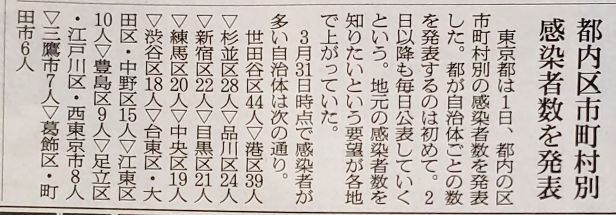 都内区市町村別
感染者数を発表
東京都は1日、都内の区
市町村別の感染者数を発表
した。都が自治体ごとの数
を発表するのは初めて。2
日以降も毎日公表していく
という。地元の感染者数を
知りたいという要望が各地
で上がっていた。
3月31日時点で感染者が
多い自治体は次の通り。
世田谷区44人▽港区39人
▽杉並区28人▽品川区24人
▽新宿区22人▽目黒区21人
▽練馬区20人▽中央区19人
▽渋谷区18人▽台東区・大
田区・中野区15人▽江東区
10人▽豊島区9人▽足立区
・江戸川区・西東京市8人
▽三鷹市7人▽葛飾区・町
田市6人